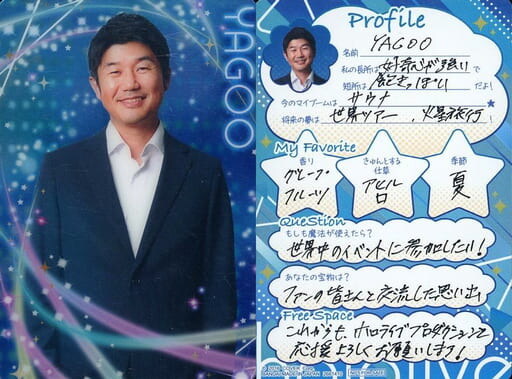 YAGOO
Profile
名前 YAGOO
私の長所は 好奇心が強い で
短所は 飽きっぽい だよ!
今のマイブームは サウナ
将来の夢は 世界ツアー、火星旅行!
My Favorite
香り
グレープ
フルーツ
きゅんとする
仕草
アヒル
口
季節
夏
QueStion
もしも魔法が使えたら?
世界中のイベントに参加したい!
あなたの宝物は?
ファンの皆さんと交流した思い出
Free Space
これからも、ホロライブプロダクションを
応援よろしくお願いします!